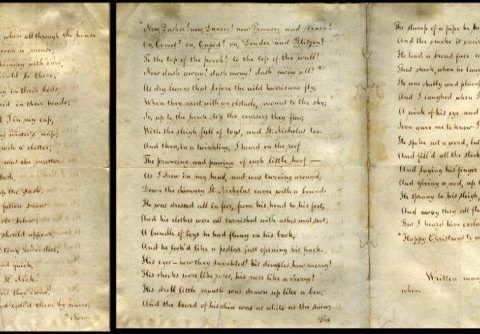 when all through the house
a mouse;
chimney with care,
would be there;
in their beds,
in their heads;
I in my cap,
winter's nap;
such a clatter;
was the matter.
flash
up the sash.
fallen snow
below;
should appear,
tiny rein-deer,
quick,
St. Nick.
they came,
by name;
"Now, Dasher! now, Dancer! now Prancer, and Vixen!
On, Comet! on, Cupid! on, Donder and Blitzen!
To the top of the porch! to the top of the wall!
Now dash away! dash away! dash away all!"
As dry leaves that before the wild hurricane fly,
When they meet with an obstacle, mount to the sky;
So, up to the house-top the coursers they flew,
With the sleigh full of toys, and St. Nicholas too.
And then, in a twinkling, I heard on the roof
The prancing and pawing of each little hoof—
As I drew in my head, and was turning around,
Down the chimney St. Nicholas came with a bound.
He was dressed all in fur, from his head to his foot,
And his clothes were all tarnished with ashes and soot;
A bundle of toys he had flung on his back,
And he look'd like a pedlar just opening his pack.
His eyes—how they twinkled! his dimples how merry!
His cheeks were like roses, his nose like a cherry!
His droll little mouth was drawn up like a bow,
And the beard of his chin was as white as the snow;
The
The stump of a pipe he
And the smoke it
He had a broad face
That shook, when he
He was chubby and plump
And I laughed when I
A wink of his eye and
Soon gave me to know I
He spoke not a word, but
And fill'd all the stock
And laying his finger
And giving a nod, up
He sprang to his sleigh,
And away they all fl
But I heard him excla
"Happy Christmas to
Written many
when